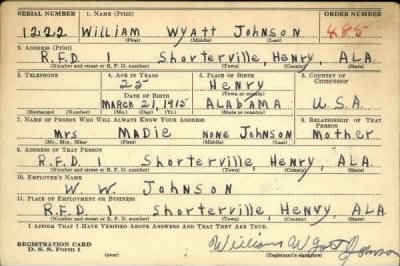 SERIAL NUMBER 1. NAME (Print) ORDER NUMBER
1222 WILLIAM WYATT JOHNSON 485
(First) (Middle) (Last)
2. ADDRESS (Print)
R.F.D. 1 SHORTERVILLE, HENRY, ALA
(Number and street or R. F. D. number) (Town) (County) (State)
3. TELEPHONE 4. AGE IN YEARS 5. PLACE OF BIRTH 6. COUNTRY OF CITIZENSHIP
25 HENRY
DATE OF BIRTH (Town or county)
MARCH 21, 1915 ALABAMA U.S.A.
(Exchange) (Number) (Mo.) (Day) (Yr.) (State or country)
7. NAME OF PERSON WHO WILL ALWAYS KNOW YOUR ADDRESS 8. RELATIONSHIP OF THAT PERSON
Mrs MADIE NONE JOHNSON Mother
(Mr., Mrs., Miss) (First) (Middle) (Last)
9. ADDRESS OF THAT PERSON
R.F.D. 1 SHORTERVILLE, HENRY, ALA.
(Number and street or R. F. D. number) (Town) (County) (State)
10. EMPLOYER'S NAME
W. W. JOHNSON
11. PLACE OF EMPLOYMENT OR BUSINESS
R.F.D. SHORTERVILLE HENRY, ALA
(Number and street or R. F. D. number) (Town) (County) (State)
I AFFIRM THAT I HAVE VERIFIED ABOVE ANSWERS AND THAT THEY ARE TRUE.
REGISTRATION CARD
D. S. S. Form 1 (over) (Registrant's signature)
William Johnson